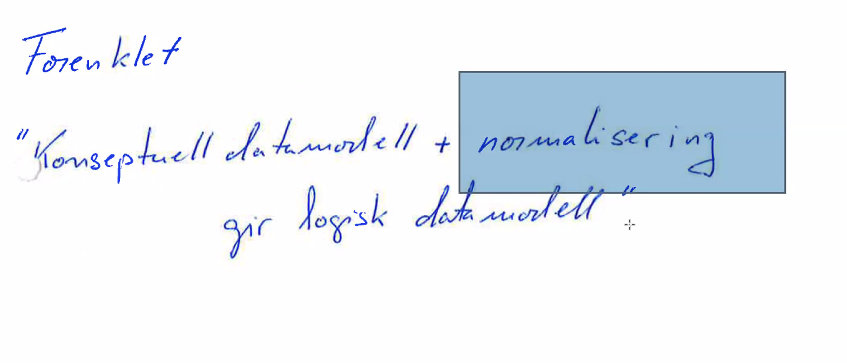 Forenklet
"Konseptuell datamodell + normalisering
gir logisk datamodell"